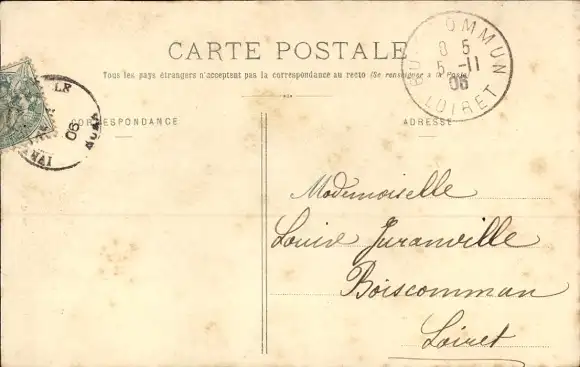 CARTE POSTALE
Tous les pays étrangers n'acceptent pas la correspondance au recto (Se renseigner à la Poste)
CORRESPONDANCE
ADRESSE
OMMUN
8 5
5 -11
06
LOIRET
LE
06
Mademoiselle
Louise Juranville
Boiscommun
Loiret